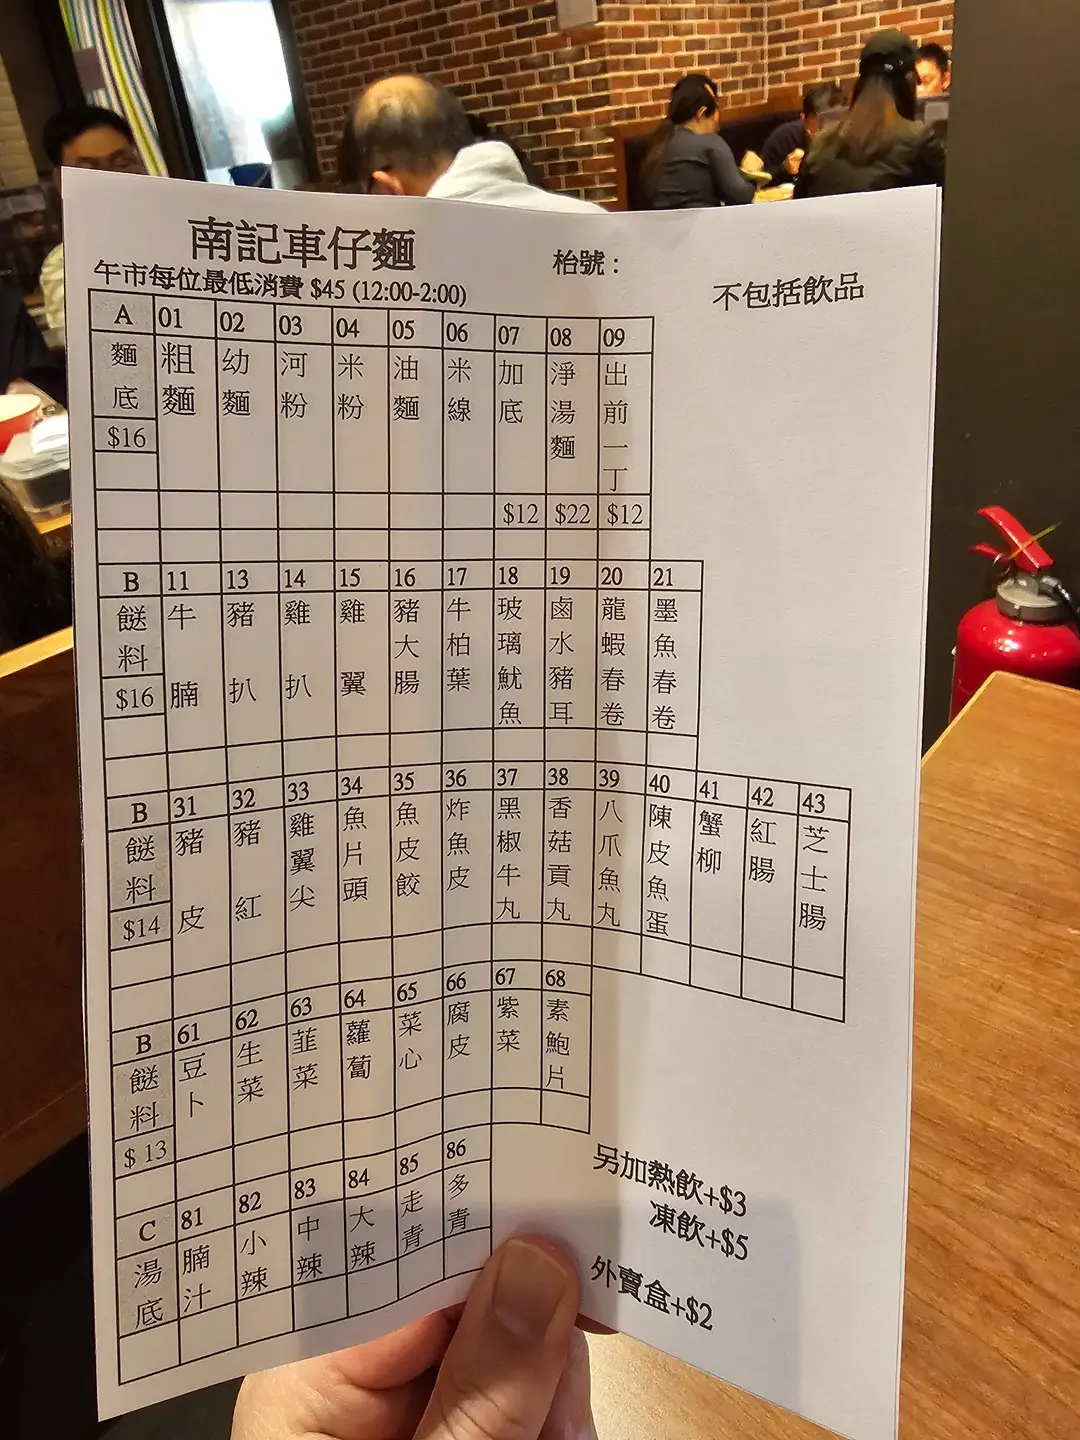 南記車仔麵
枱號：
午市每位最低消費 $45 (12:00-2:00)
不包括飲品
A 01 02 03 04 05 06 07 08 09
麵底 粗麵 幼麵 河粉 米粉 油麵 米線 加底 淨湯麵 出前一丁
$16
$12 $22 $12
B 11 13 14 15 16 17 18 19 20 21
餸料 牛腩 豬扒 雞扒 雞翼 豬大腸 牛柏葉 玻璃魷魚 鹵水豬耳 龍蝦春卷 墨魚春卷
$16
B 31 32 33 34 35 36 37 38 39 40 41 42 43
餸料 豬皮 豬紅 雞翼尖 魚片頭 魚皮餃 炸魚皮 黑椒牛丸 香菇貢丸 八爪魚丸 陳皮魚蛋 蟹柳 紅腸 芝士腸
$14
B 61 62 63 64 65 66 67 68
餸料 豆卜 生菜 韮菜 蘿蔔 菜心 腐皮 紫菜 素鮑片
$13
C 81 82 83 84 85 86
湯底 腩汁 小辣 中辣 大辣 走青 多青
另加熱飲+$3
凍飲+$5
外賣盒+$2